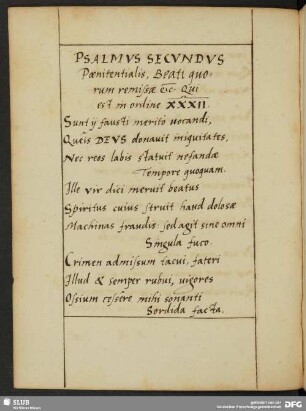 PSALMVS SECVNDVS
Pœnitentialis, Beati quo-
rum remissæ &c. Qui
est in ordine XXXII.
Sunt ij fausti meritò uocandi,
Queîs DEVS donauit iniquitates,
Nec reos labis statuit nefandæ
Tempore quoquam.
Ille vir dici meruit beatus
Spiritus cuius struit haud dolosæ
Machinas fraudis: sed agit sine omni
Singula fuco.
Crimen admissum tacui, fateri
Illud & semper rubui, uigores
Ossium cessere mihi sonanti
Sordida facta.
SLUB
Wir führen Wissen.
DFG